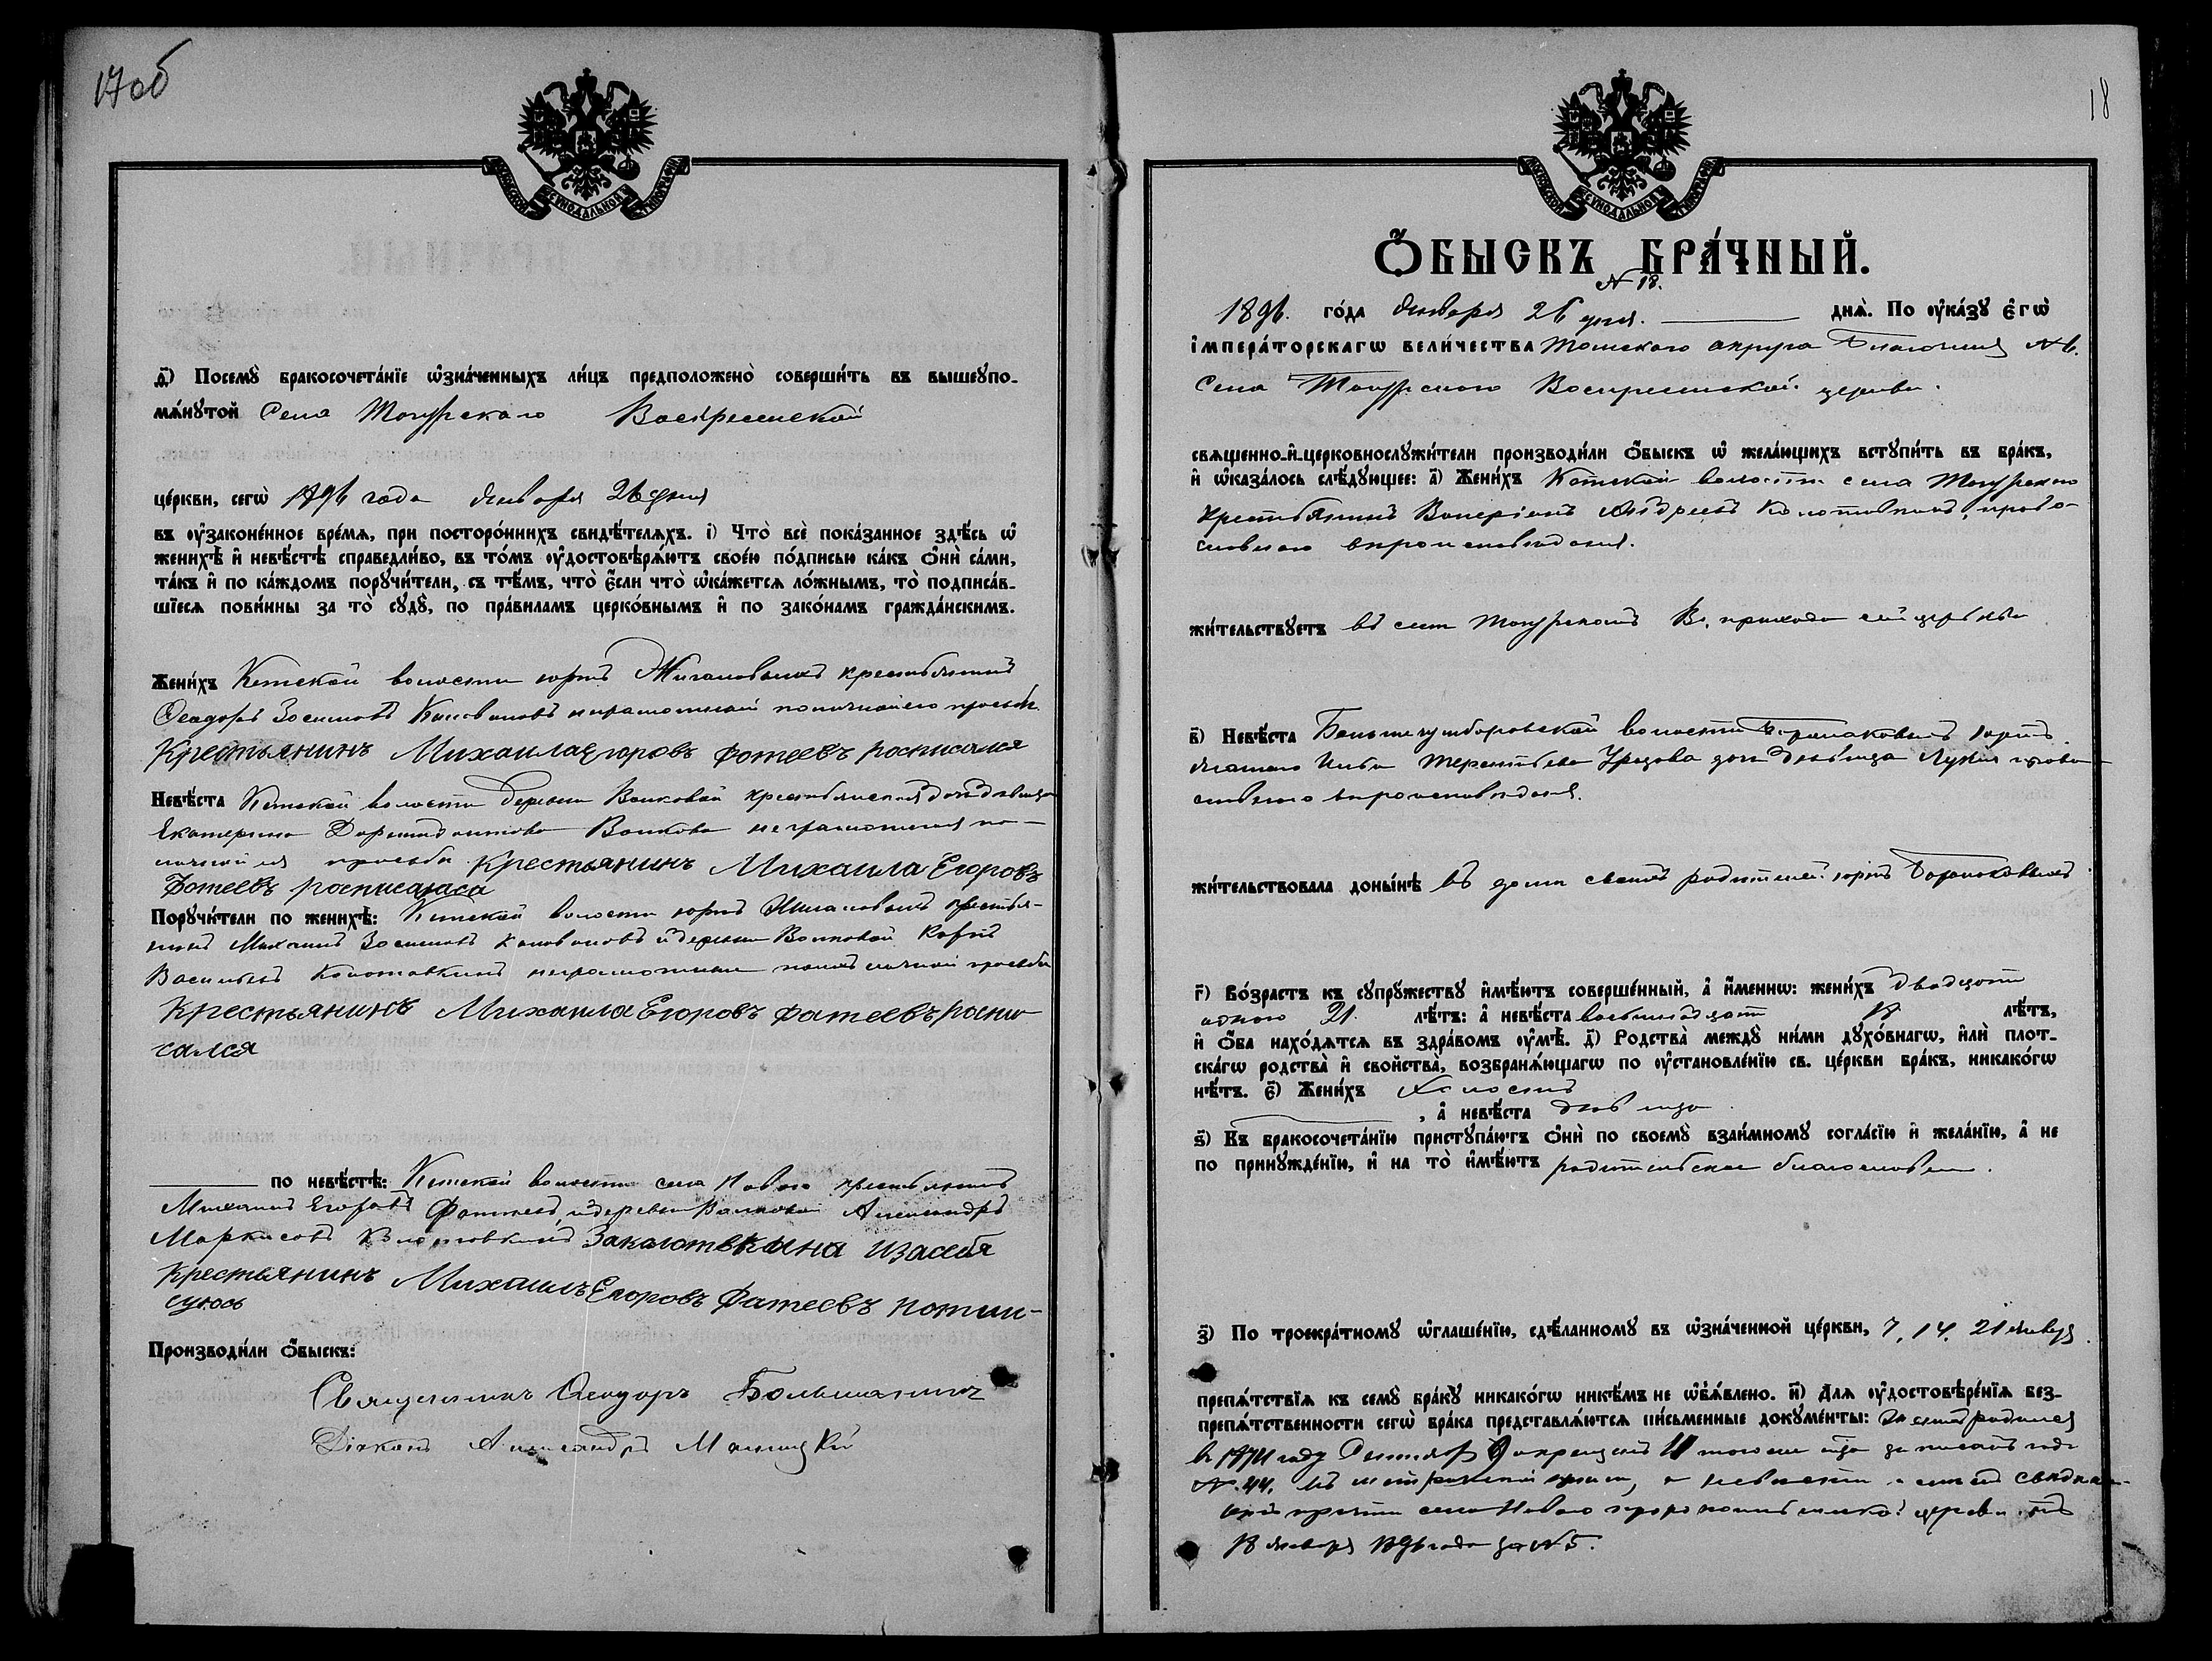 17об
МОСКОВСКОЙ СѴНОДАЛЬНОЙ ТИПОГРАФІИ
д҃) Посемꙋ̀ бракосочета́нїе ѡ҆зна́ченныхъ ли́цъ предположено̀ соверши́ть въ вышеꙋпо-
мѧ́нꙋтой Села Тогурскаго Воскресенской
це́ркви, сегѡ̀ 1896 года Января 26 дня
въ ᲂу҆законе́нное вре́мѧ, при посторо́ннихъ свидѣ́телѧхъ. і҃) Что̀ всѐ пока́занное здѣ́сь ѡ҆
женихѣ̀ и҆ невѣ́стѣ справедли́во, въ то́мъ ᲂу҆достовѣрѧ́ютъ свое́ю по́дписью ка́къ ѻ҆нѝ са́ми,
та́къ и҆ по ка́ждомъ порꙋчи́тели, съ тѣ́мъ, что̀ є҆́сли что̀ ѡ҆ка́жетсѧ ло́жнымъ, то̀ подписа́в-
шїесѧ пови́нны за то̀ сꙋдꙋ̀, по пра́виламъ церко́внымъ и҆ по зако́намъ гражда́нскимъ.
Жени́хъ Кетской волости юртъ Жигаловыхъ крестьянинъ
Ѳеодоръ Зосимовъ Коноваловъ неграмотный по личной его просьбѣ
Крестьянинъ Михаила Егоровъ Фотеевъ росписался
Невѣ́ста Кетской волости деревни Волковой крестьянская дочь дѣвица
Екатерина Дормидонтова Волкова неграмотная по
личной ея просьбѣ Крестьянинъ Михаила Егоровъ
Фотеевъ росписалса
Порꙋчи́тели по женихѣ̀: Кетской волости юртъ Жигаловыхъ крестья-
нинъ Михаилъ Зосимовъ Коноваловъ и деревни Волковой
Васильевъ Колотовкинъ неграмотные по ихъ личной просьбѣ
Крестьянинъ Михаила Егоровъ Фатеевъ роспи-
сался
по невѣ́стѣ: Кетской волости села Новаго крестьянинъ
Михаилъ Егоровъ Фатеевъ и деревни Волковой Александръ
Маркисовъ Колотовкинъ За калотовкина и засебя
Крестьянинъ Михаилъ Егоровъ Фатеевъ потпи-
суюсь
Производи́ли ѻ҆́быскъ:
Священникъ Ѳеодоръ Большанинъ
Діаконъ Александръ
18
МОСКОВСКОЙ СѴНОДАЛЬНОЙ ТИПОГРАФІИ
Ѻ҆́БЫСКЪ БРА́ЧНЫЙ.
N 18.
1896. го́да Января 26 дня. днѧ̀. По ᲂу҆ка́зꙋ є҆гѡ̀
і҆мпера́торскагѡ вели́чества Томскаго округа Благочинія N 6.
Села Тогурскаго Воскресенской церкви.
свѧще́нно-и҆-церковнослꙋжи́тели производи́ли ѻ҆́быскъ ѡ҆ жела́ющихъ встꙋпи́ть въ бра́къ,
и҆ ѡ҆каза́лось слѣ́дꙋющее: а҃) Жени́хъ Кетской волости села Тогурскаго
Крестьянинъ Валеріанъ Андреевъ Колотовкинъ, право-
славнаго вѣроисповѣданія.
жи́тельствꙋетъ въ селѣ Тогурскомъ Въ приходѣ сей церкви
в҃) Невѣ́ста волости юртъ
Терентьева дочь дѣвица Лукія право-
славнаго вѣроисповѣданія.
жи́тельствовала доны́нѣ въ домѣ своихъ родителей юртъ
г҃) Во́зрастъ къ сꙋпрꙋ́жествꙋ и҆мѣ́ютъ соверше́нный, а҆ и҆́меннѡ: жени́хъ двадцати
одного 21. лѣ́тъ: а҆ невѣ́ста восьмнадцати 18 лѣ́тъ,
и҆ ѻ҆́ба нахо́дѧтсѧ въ здра́вомъ ᲂу҆мѣ̀. д҃) Родства̀ междꙋ̀ ни́ми дꙋхо́внагѡ, и҆лѝ плот-
ска́гѡ родства̀ и҆ сво́йства, возбранѧ́ющагѡ по ᲂу҆становле́нїю св. це́ркви бра́къ, никако́гѡ
нѣ́тъ. є҃) Жени́хъ Холостъ
, а҆ невѣ́ста дѣвица.
ѕ҃) Къ бракосочета́нїю пристꙋпа́ютъ ѻ҆нѝ по своемꙋ̀ взаи́мномꙋ согла́сїю и҆ жела́нїю, а҆ не
по принꙋжде́нїю, и҆ на то̀ и҆мѣ́ютъ родительское благословен.
з҃) По троекра́тномꙋ ѡ҆глаше́нїю, сдѣ́ланномꙋ въ ѡ҆зна́ченной це́ркви, 7, 14, 21 января.
препѧ́тствїѧ къ семꙋ̀ бра́кꙋ никако́гѡ никѣ́мъ не ѡ҆б̾ѧ́влено. и҃) Длѧ ᲂу҆достовѣре́нїѧ без-
препѧ́тственности сегѡ̀ бра́ка представлѧ́ютсѧ пи́сьменные докꙋме́нты: Женихъ родился
въ 1874 году 9 крещенъ 11 того же записанъ подъ
N. 44. въ метрической книгѣ, о невѣстѣ
причта села Новаго церкви отъ
18 января 1896 года за N 5.